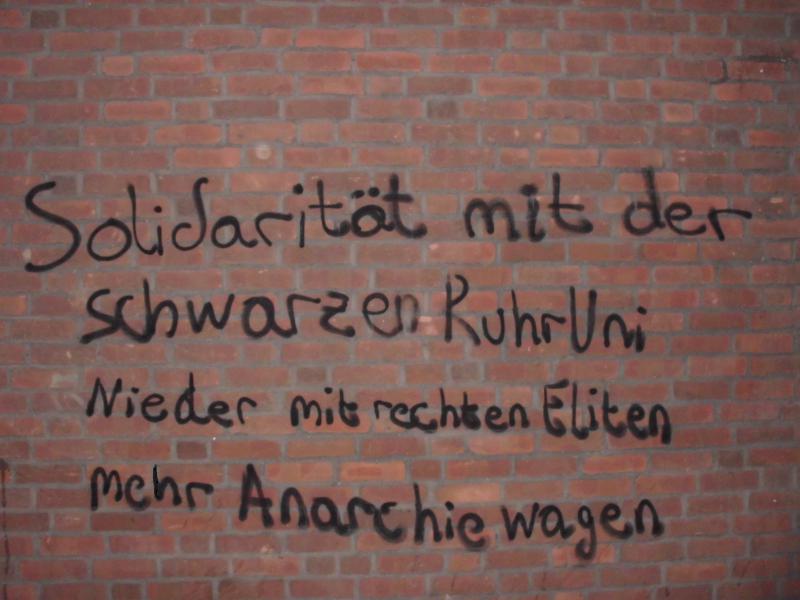 Solidarität mit der
schwarzen RuhrUni
Nieder mit rechten Eliten
mehr Anarchie wagen